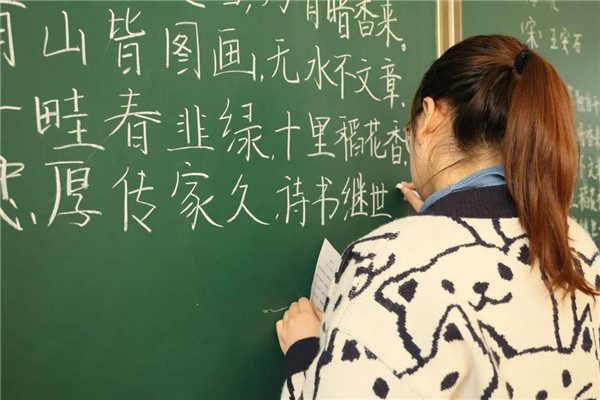 有暗香来。
有山皆图画,无水不文章,
一畦春韭绿,十里稻花香,
忠厚传家久,诗书继世
宋:王安石